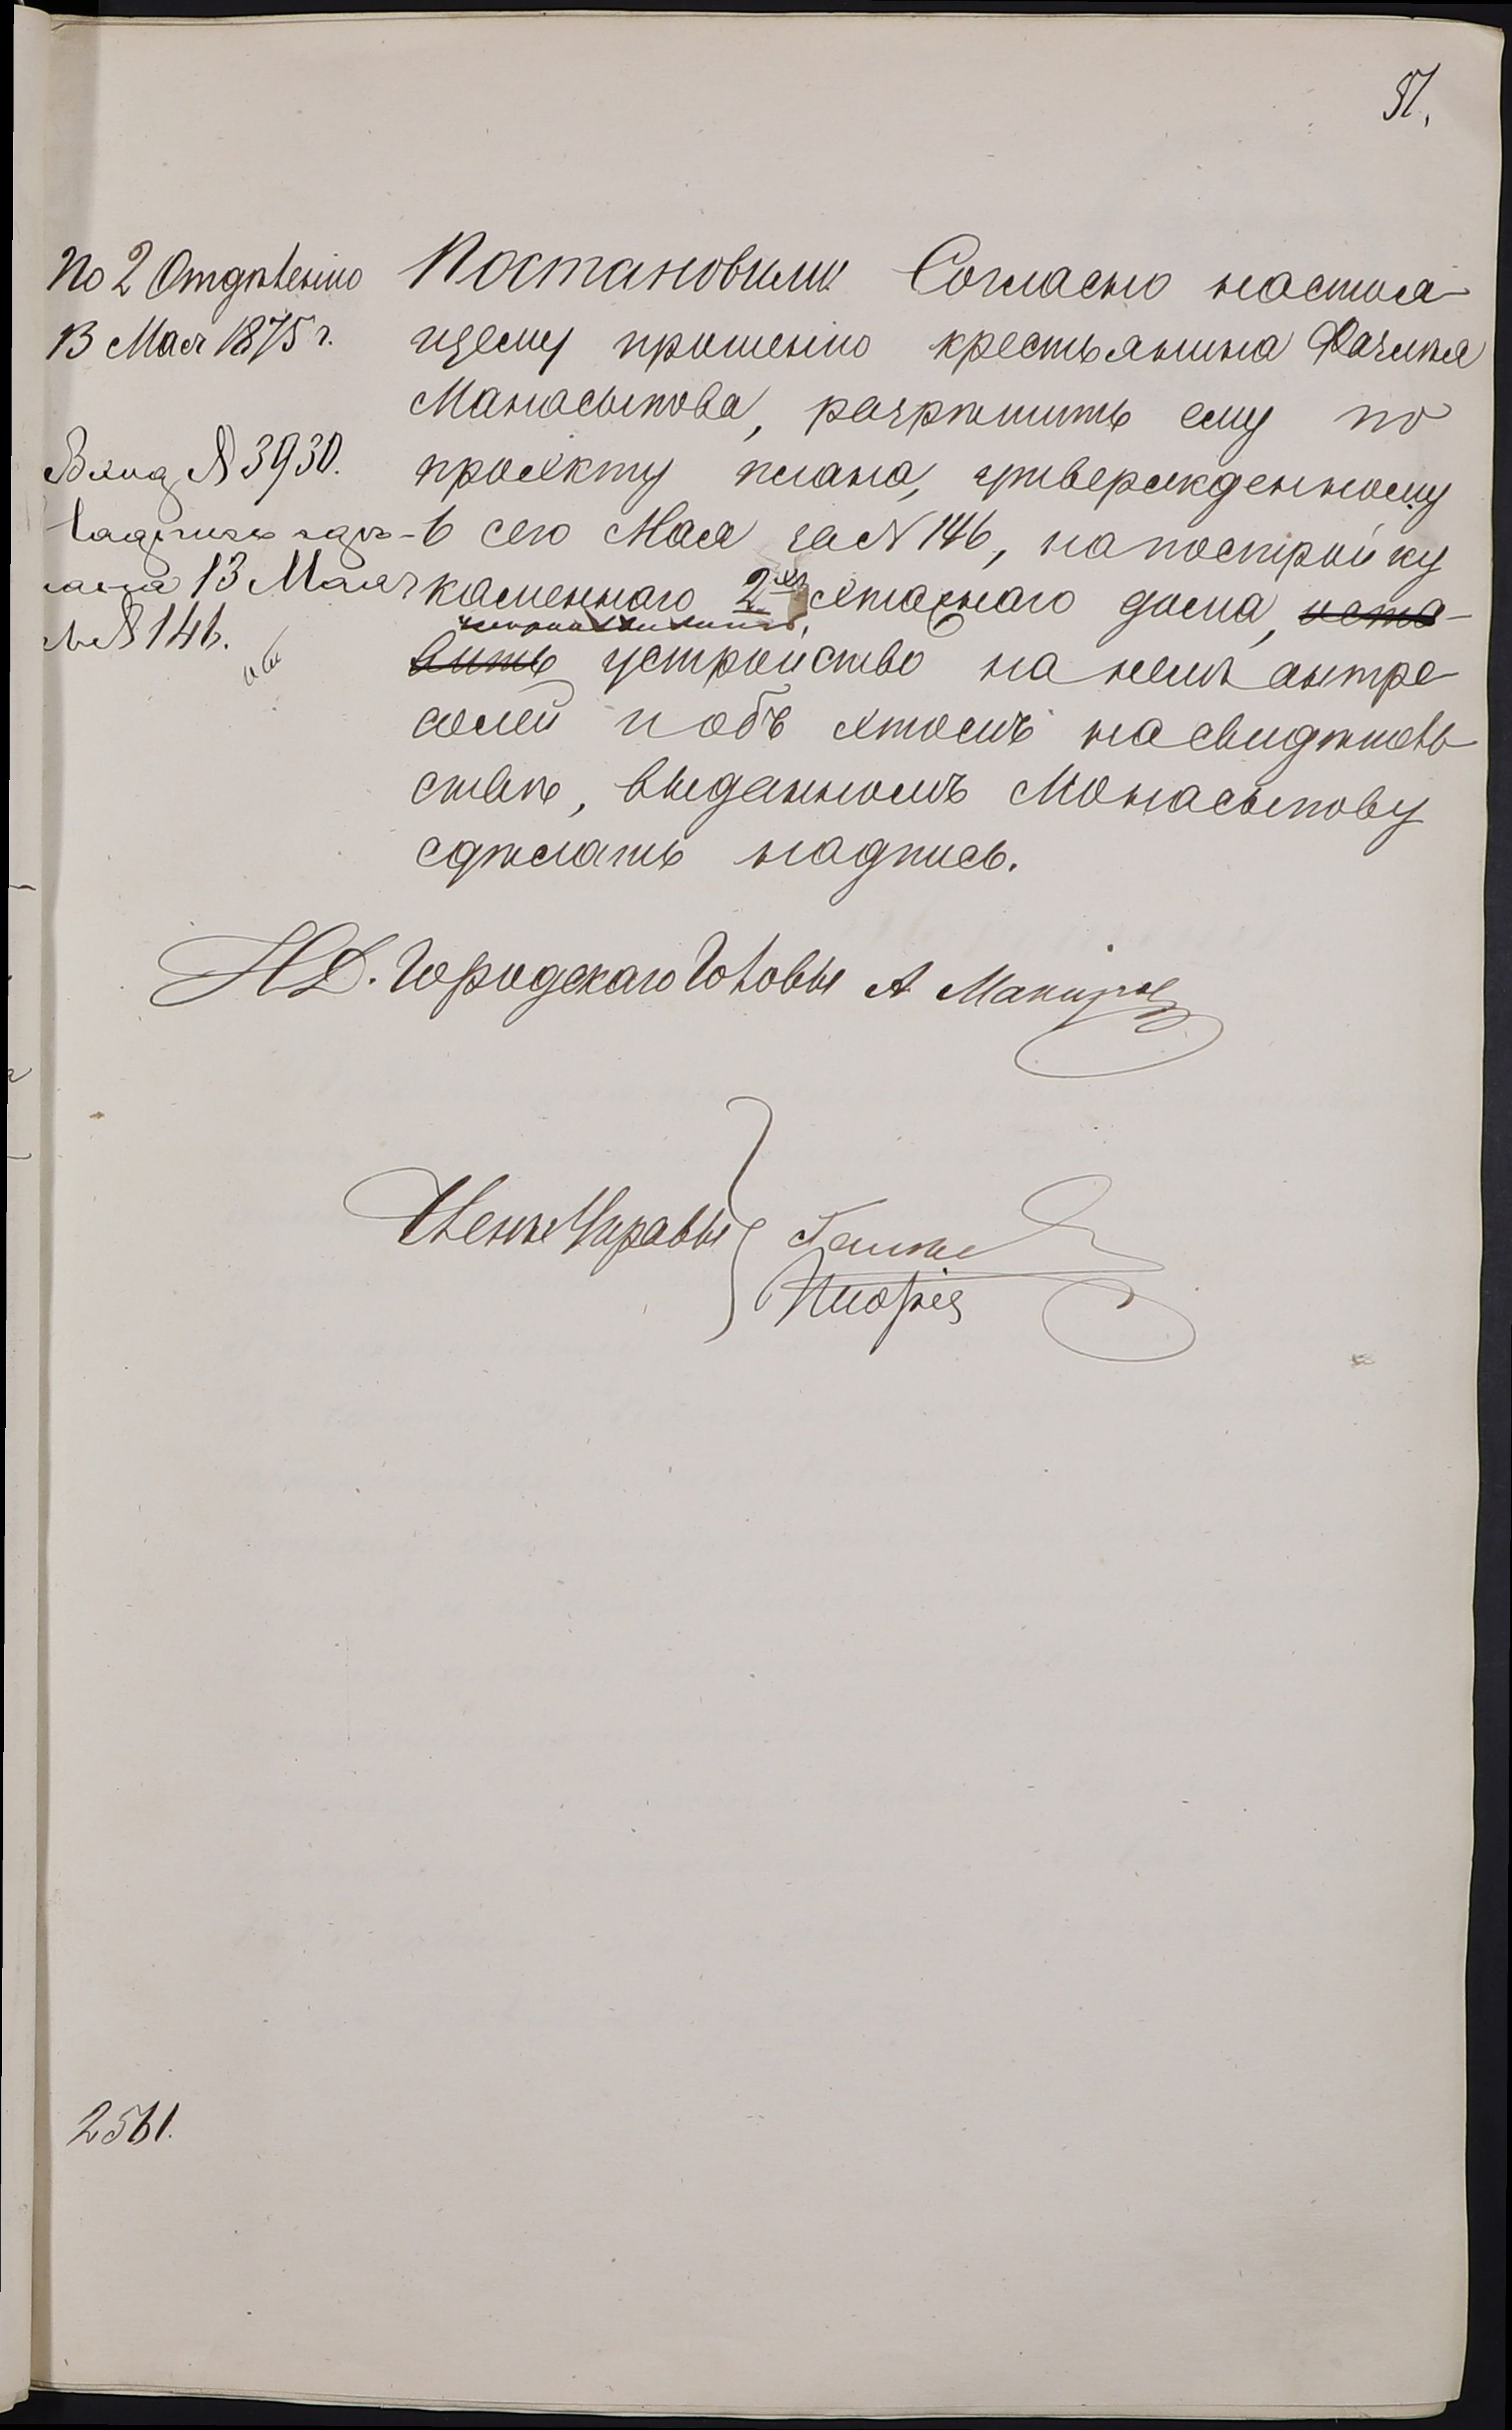 51.
По 2 Отдѣленію
13 Мая 1875 г.
Вход № 3930.
Надпись сдѣ-
лана 13 Мая
№ 146.
Постановили Согласно настоя-
щему прошенію крестьянина
Манасыпова, разрѣшить ему по
проэкту плана, утвержденному
6 сего Мая за № 146, на постройку
каменнаго 2хъ этажнаго дома, оста-
вить устройство на немъ антре-
солей и объ этомъ на свидѣтель-
ствѣ, выданномъ Монасыпову
сдѣлать надпись.
И. Д. Городскаго Головы А
Члены Управы
2561.